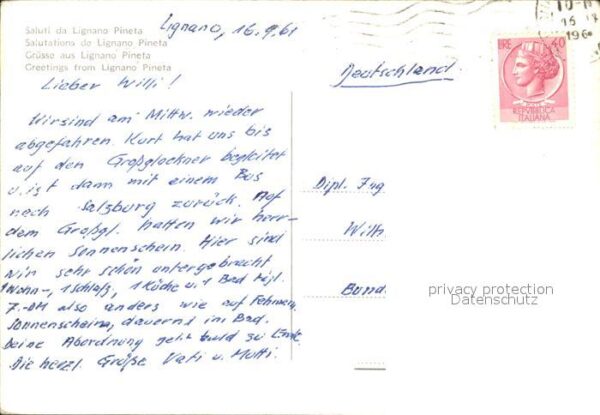 Saluti da Lignano Pineta
Salutations de Lignano Pineta
Grüsse aus Lignano Pineta
Greetings from Lignano Pineta
Lignano, 16.9.61
Lieber Willi!
Wir sind am Mittw. wieder
abgefahren. Kurt hat uns bis
auf den Großglockner begleitet
u. ist dann mit einem Bus
nach Salzburg zurück. Auf
dem Großgl. hatten wir herr-
lichen Sonnenschein. Hier sind
wir sehr schön untergebracht
1 Wohn-, 1 Schlafz, 1 Küche u. 1 Bad tägl.
7.-DM also anders wie auf Fehmarn
Sonnenschein, dauernd im Bad.
Deine Abordnung geht bald zu Ende
Die herzl. Grüße Vati u. Mutti.
Deutschland
LIRE 40
REPVBBLICA
ITALIANA
Dipl. Ing
Willi
Bund
privacy protection
Datenschutz